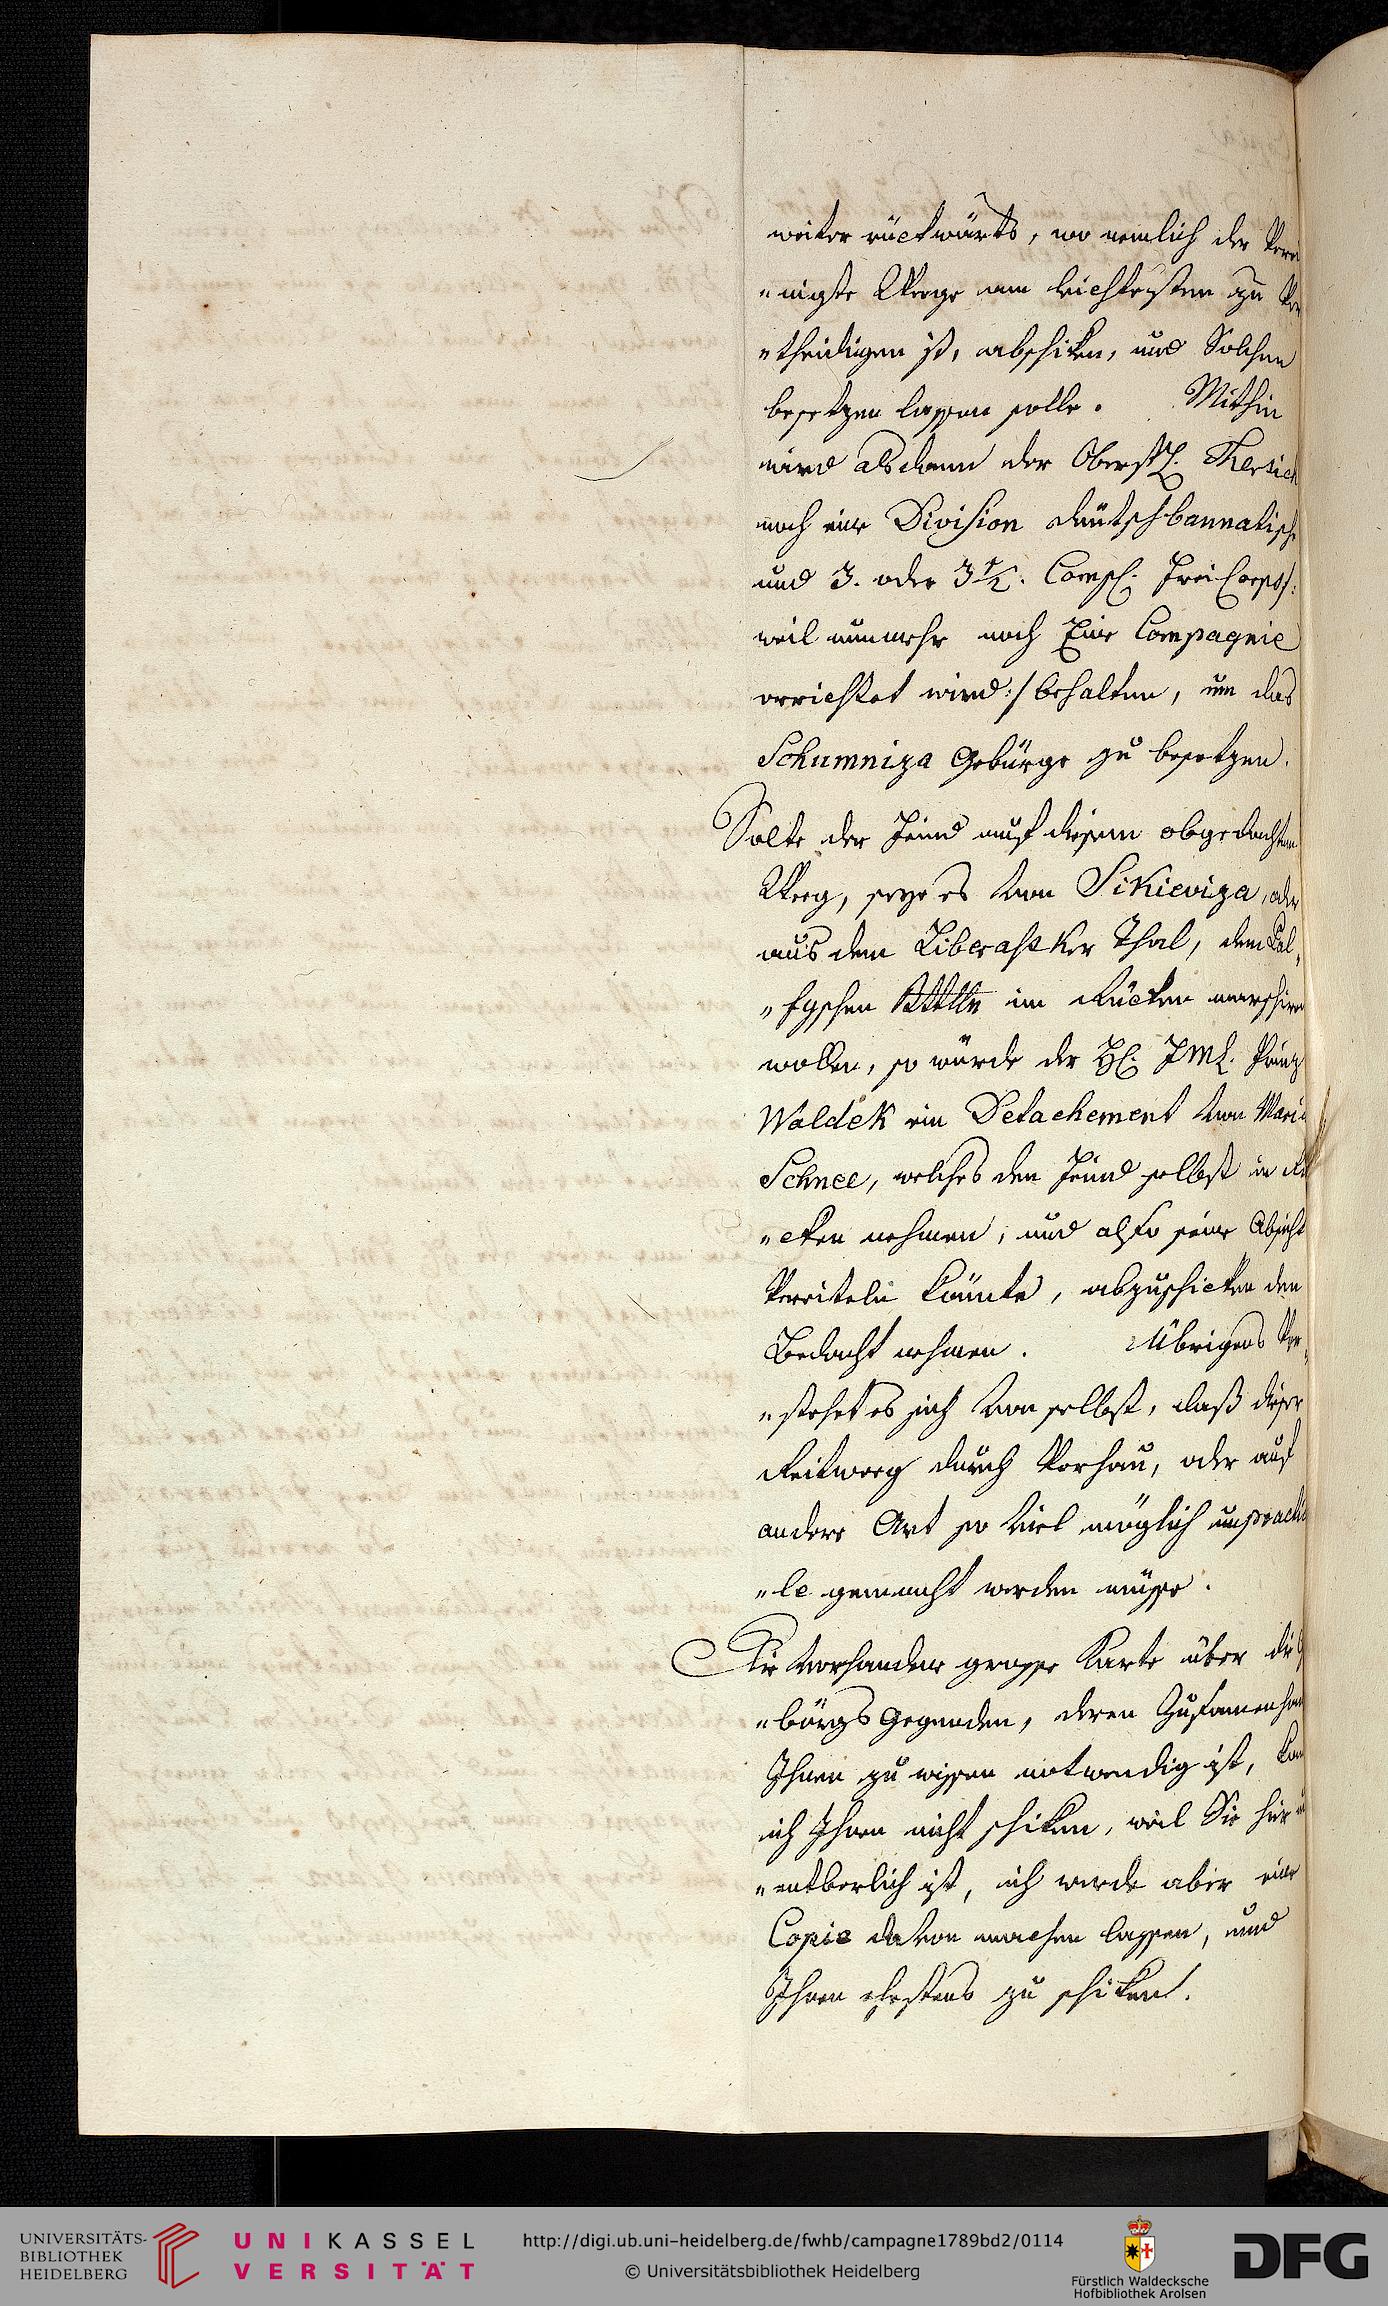 weiter rückwärts, wo nemlich der Verei
„nigte Weege am leichtesten zu Ver
„theidigen ist, abschiken, und Solchen
besetzen lassen solle. Mithin
wird alsdann der Oberstl. Thersich
noch eine Division deütschbannatische
und 3. oder 3 1/2. Comp. FreiCorps /:
weil nunmehr noch Eine Compagnie
errichtet wird :/ behalten, um das
Schumniza Gebürge zu besetzen.
Solte der Feind auf diesem obgedachten
Weeg, seye es von Sikieviza, oder
aus dem Liberaschker Thal, dem Pal„
„fyschen im Rücken marschiren
wollen, so würde der H. FML. Prinz
Waldek ein Detachement von Maria
Schnee, welches den Feind selbst in Rü
„cken nehmen, und also seine Absicht
Vereiteln könte, abzuschicken den
Bedacht nehmen. Übrigens Ver„
„stehet es sich von selbst, daß dieser
Reitweeg durch Verhau, oder auf
andere Art so viel möglich unpracti
„le gemacht werden müsse.
Die vorhandene grosse Karte über die G
„bürgs Gegenden, deren Zusamenhan
Ihnen zu wissen notwendig ist, kan
ich Ihnen nicht schiken, weil Sie hier u
„entberlich ist, ich werde aber eine
Copie davon machen lassen, und
Ihnen ehestens zu schiken.
UNIVERSITÄTS-
BIBLIOTHEK
HEIDELBERG
UNIKASSEL
VERSITÄT
http://digi.ub.uni-heidelberg.de/fwhb/campagne1789bd2/0114
© Universitätsbibliothek Heidelberg
Fürstlich Waldecksche
Hofbibliothek Arolsen
DFG